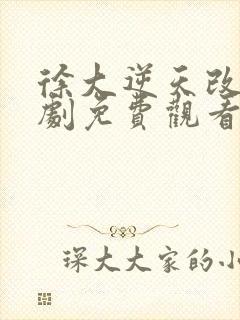 徐大逆天改
劇免費觀看
琛大大家的小